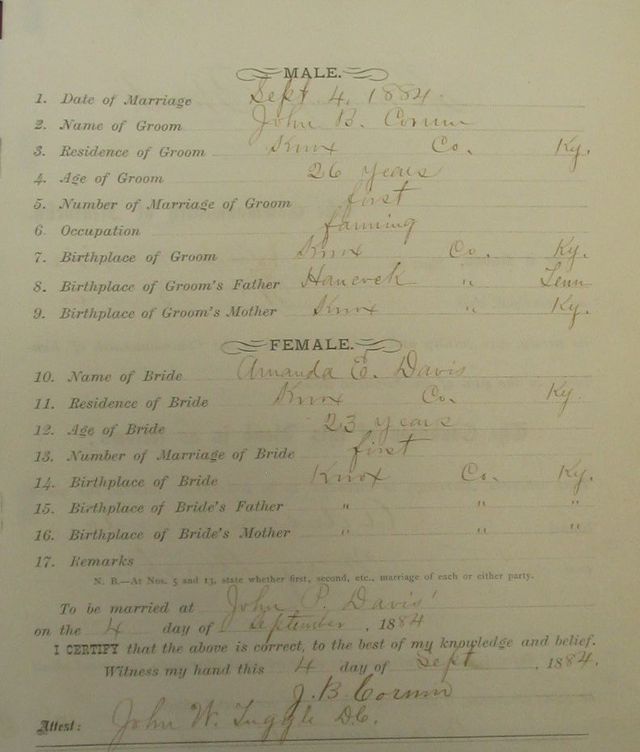 MALE.
1. Date of Marriage Sept 4, 1884
2. Name of Groom John B. Corum
3. Residence of Groom Knox Co. Ky.
4. Age of Groom 26 years
5. Number of Marriage of Groom first
6. Occupation farming
7. Birthplace of Groom Knox Co. Ky.
8. Birthplace of Groom's Father Hancock " Tenn
9. Birthplace of Groom's Mother Knox " Ky.
FEMALE.
10. Name of Bride Amanda E. Davis
11. Residence of Bride Knox Co. Ky.
12. Age of Bride 23 years
13. Number of Marriage of Bride first
14. Birthplace of Bride Knox Co. Ky.
15. Birthplace of Bride's Father " " "
16. Birthplace of Bride's Mother " " "
17. Remarks
N. B.—At Nos. 5 and 13, state whether first, second, etc., marriage of each or either party.
To be married at John P. Davis'
on the 4 day of September, 1884
I CERTIFY that the above is correct, to the best of my knowledge and belief.
Witness my hand this 4 day of Sept, 1884.
J. B. Corum
Attest: John W. Tuggle D.C.